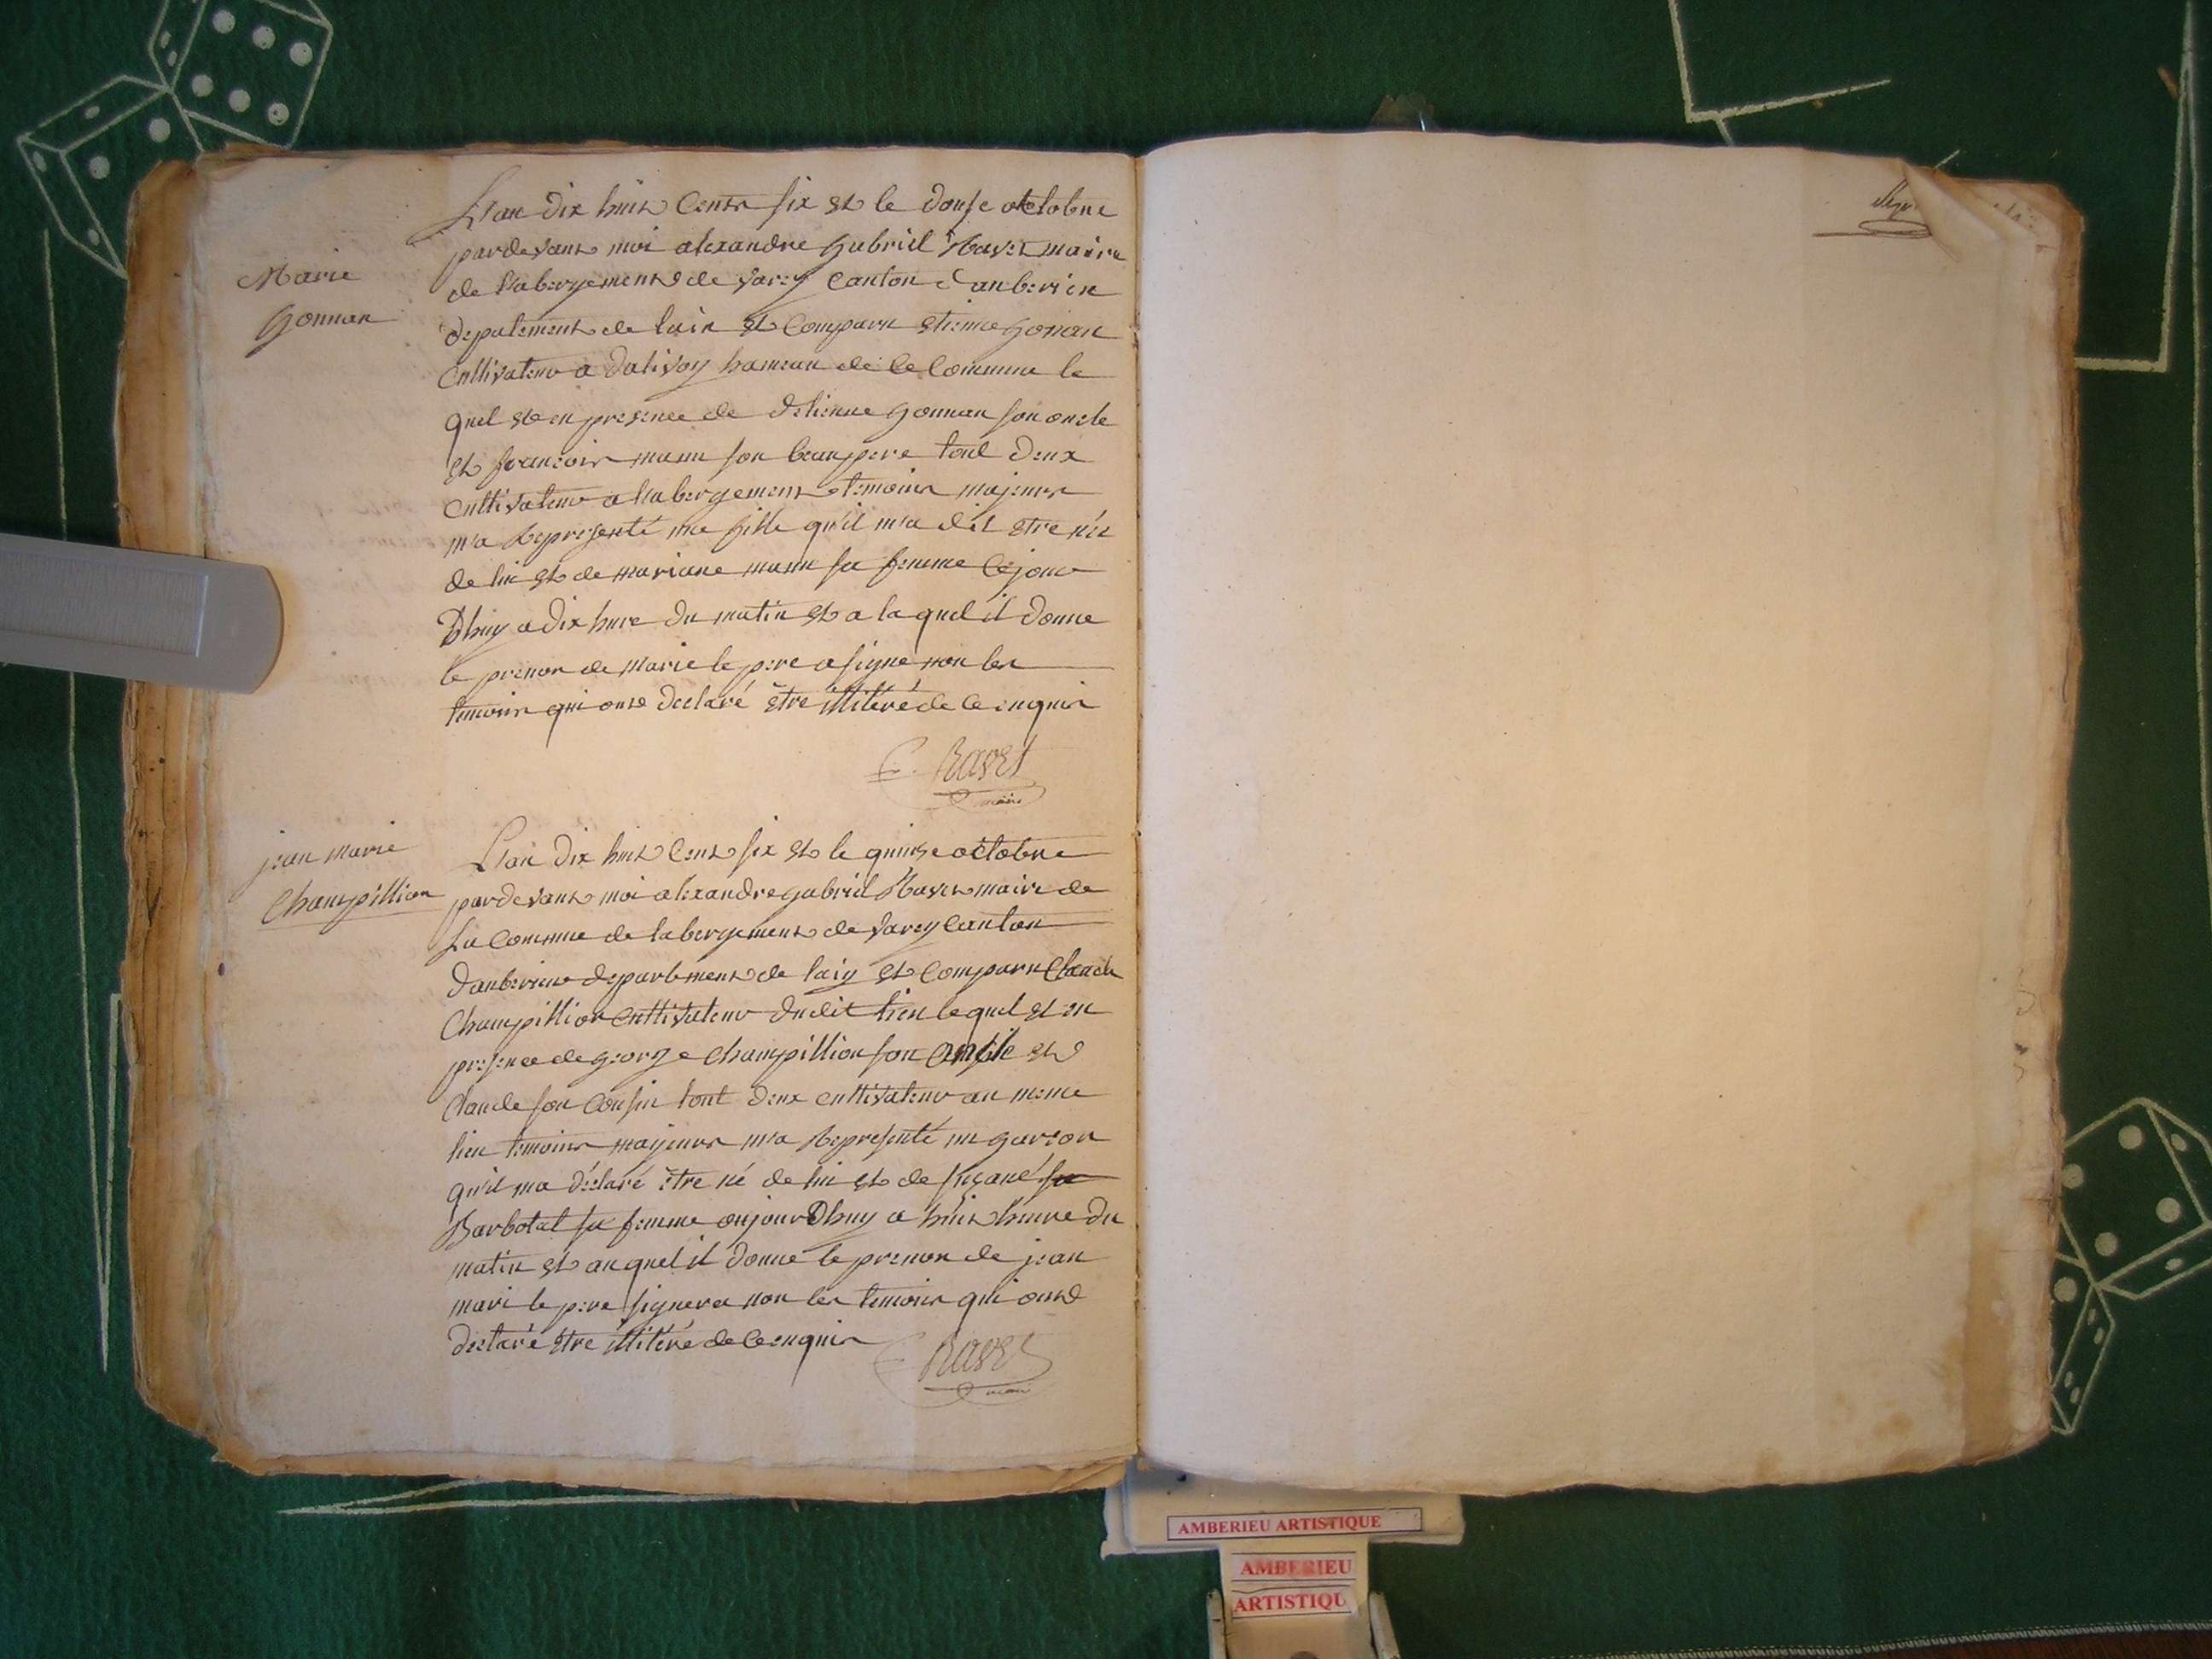 Marie
Gonnan
L'an dix huit Cents six et le douse octobre
pardevant moi alexandre Gabriel Ravet maire
de l'abergement de varey Canton d'anberien
depatement de lain et Comparu etienne Gonan
Cultivateur a dalivoy hameau de Ce Commune le
quel et en presence de detienne Gonnan son oncle
et francois munn son beaupere tout deux
Cultivateur a l'abergement temoins majeurs
m'a Representé une fille qu'il m'a dit etre née
de lui et de mariane munn sa femme Cejour
Dhuy a dix hure du matin et a laquel il donne
le prenon de Marie le pere a signe non les
temoins qui ont declaré être illiteré de Ce enquis
C. Ravet
maire
jean marie
Champillion
L'an dix huit Cent six et le quinse octobre
pardevant moi alexandre gabriel Ravet maire de
La Commune de labergement de varey Canton
danberieu departement de laiy et Comparu Claude
Champillion Cultivateur dudit lieu lequel et en
presence de george Champillion son oncle et
Claude son Cousin tout deux Cultivateur au meme
lieu temoins mayeurs m'a Representé un garcon
qu'il ma déclaré être né de lui et de suçane sa
Barbotat sa femme aujourDhuy a huit heure du
matin et auquel il donne le prenon de jean
mari le pere signera non les temoins qui ont
declaré etre illiteré de Ce enquis
C. Ravet
maire
AMBERIEU ARTISTIQUE
AMBERIEU
ARTISTIQU